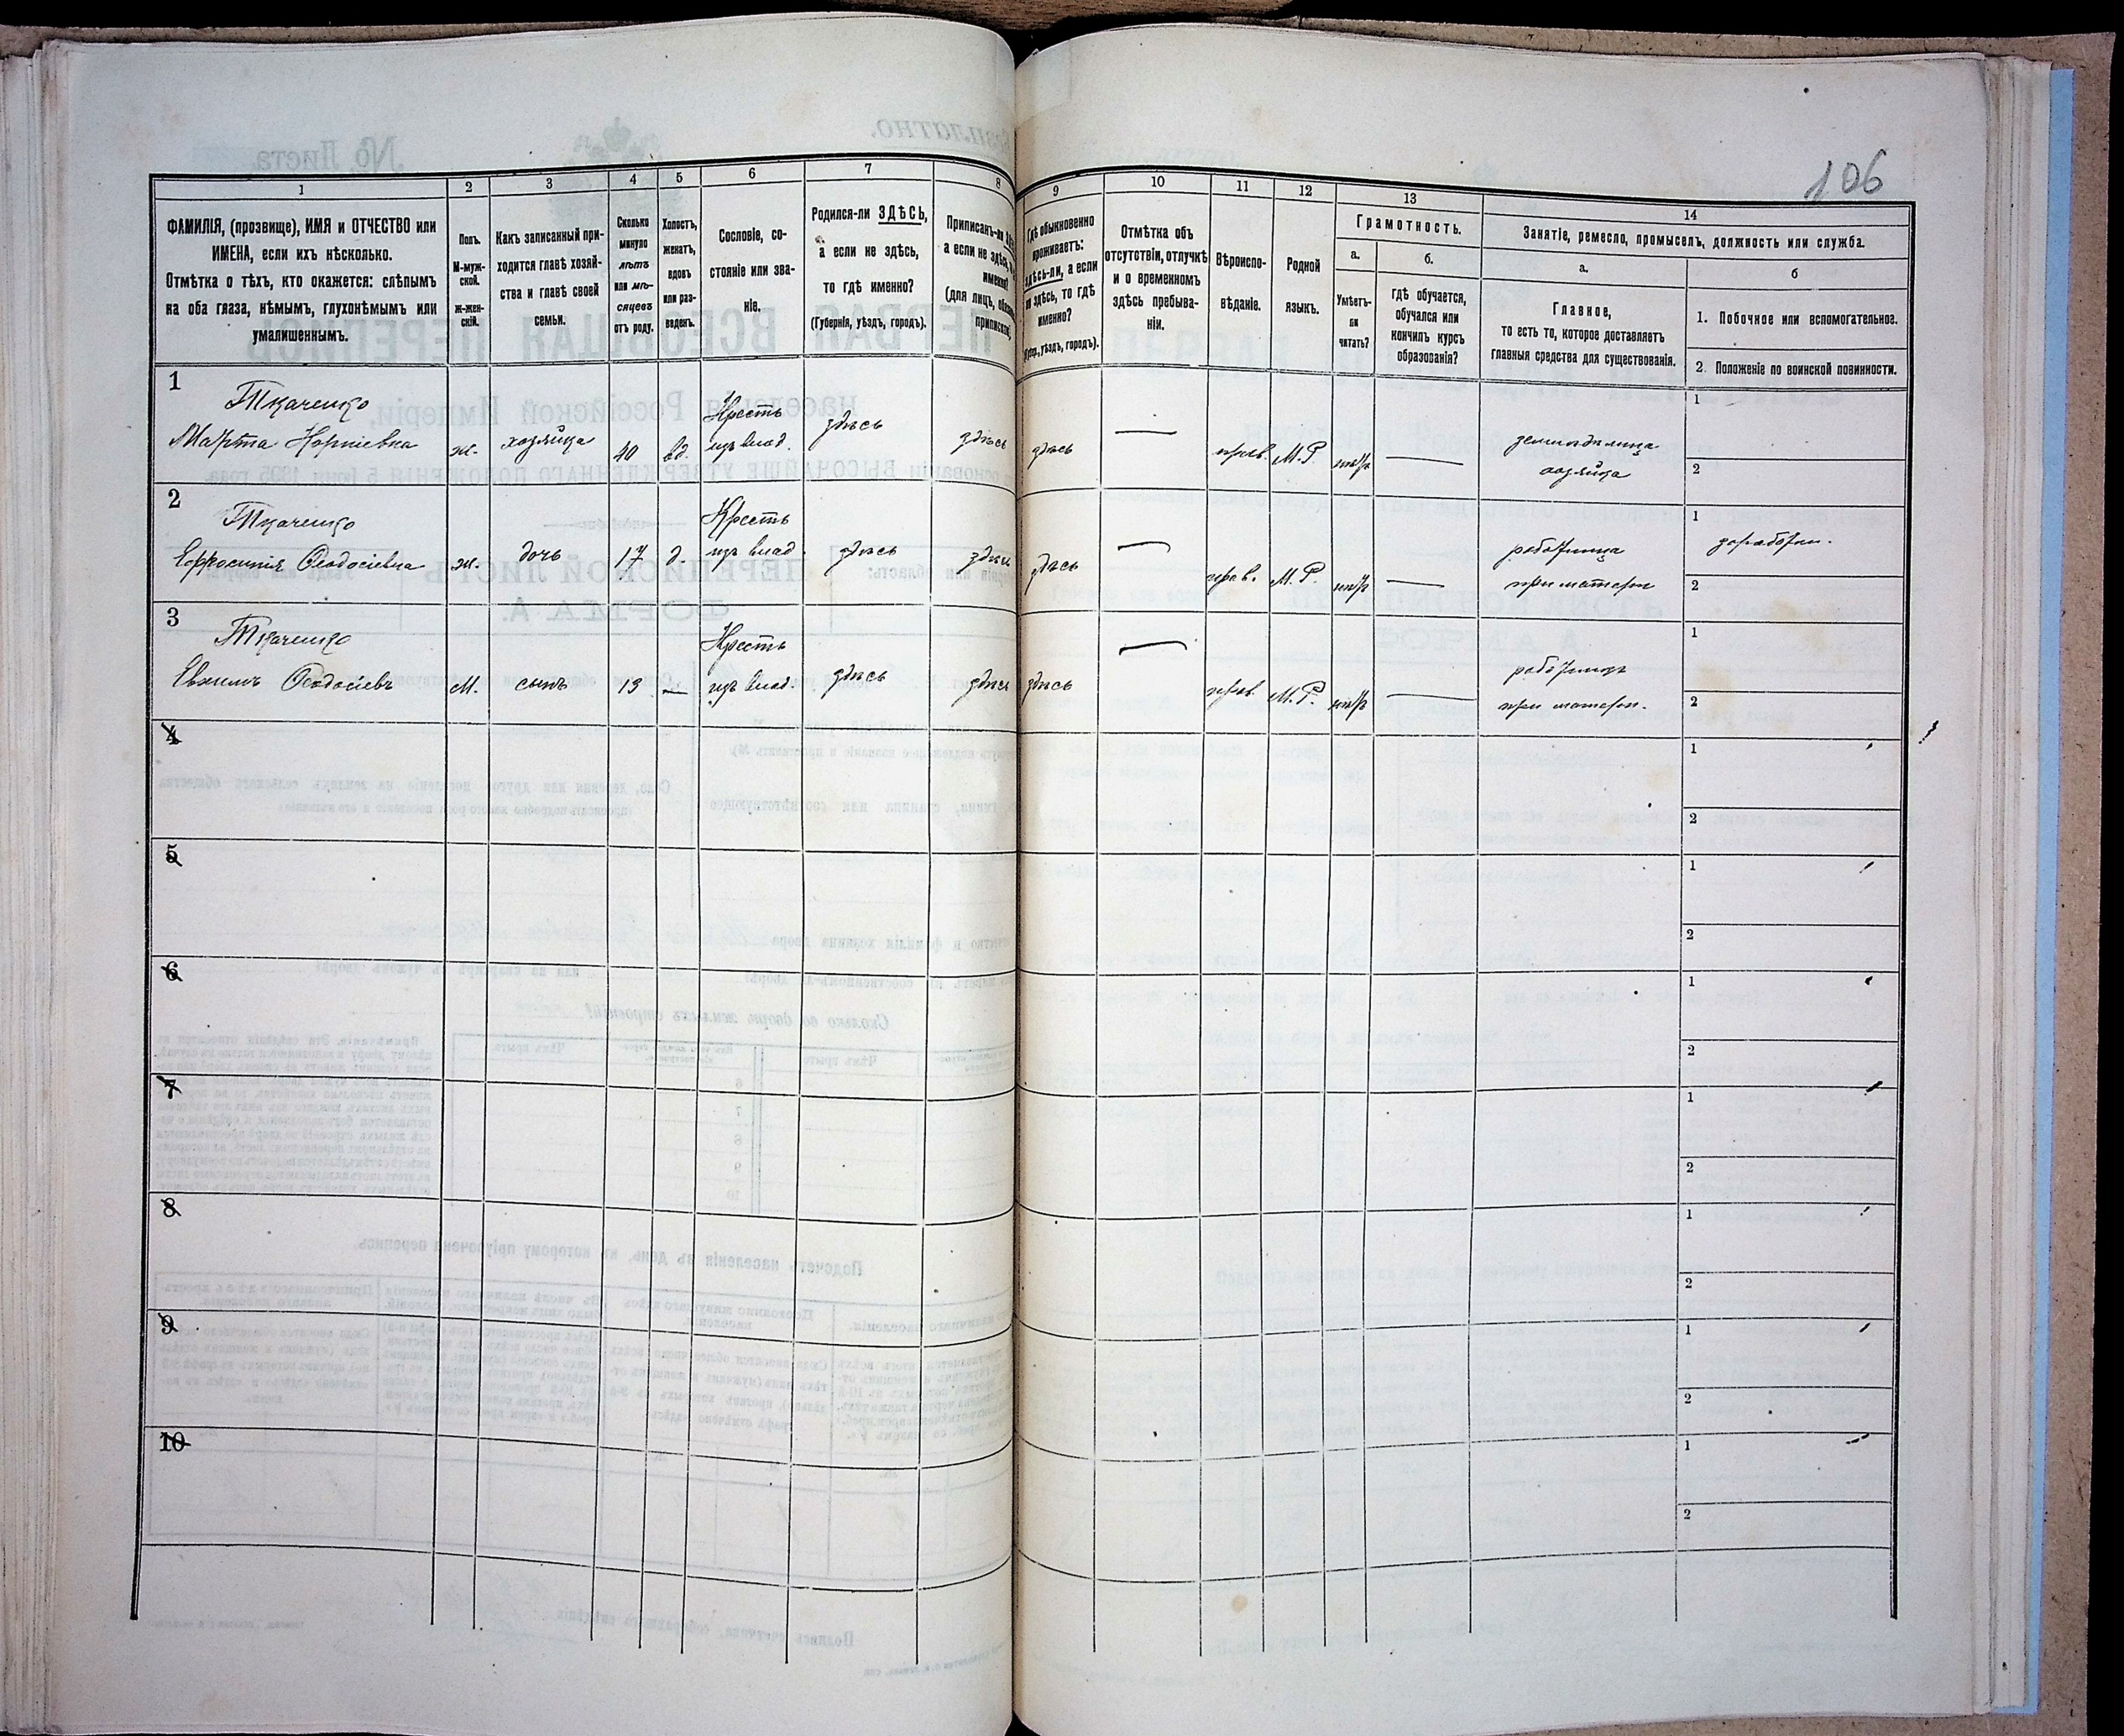 106
1
2
3
4
5
6
7
8
9
10
11
12
13
14
ФАМИЛІЯ, (прозвище), ИМЯ и ОТЧЕСТВО или
ИМЕНА, если ихъ нѣсколько.
Отмѣтка о тѣхъ, кто окажется: слѣпымъ
на оба глаза, нѣмымъ, глухонѣмымъ или
умалишеннымъ.
Полъ.
М-муж-
ской.
ж-жен-
скій.
Какъ записанный при-
ходится главѣ хозяй-
ства и главѣ своей
семьи.
Сколько
минуло
лѣтъ
или мѣ-
сяцевъ
отъ роду.
Холостъ,
женатъ,
вдовъ
или раз-
веденъ.
Сословіе, со-
стояніе или зва-
ніе.
Родился-ли ЗДѢСЬ,
а если не здѣсь,
то гдѣ именно?
(Губернія, уѣздъ, городъ).
Приписанъ-ли
а если не здѣсь,
именно?
(для лицъ,
Гдѣ обыкновенно
проживаетъ:
здѣсь-ли, а если
не здѣсь, то гдѣ
именно?
уѣздъ, городъ).
Отмѣтка объ
отсутствіи, отлучкѣ
и о временномъ
здѣсь пребыва-
ніи.
Вѣроиспо-
вѣданіе.
Родной
языкъ.
Грамотность.
а.
б.
Умѣетъ-
ли
читать?
гдѣ обучается,
обучался или
кончилъ курсъ
образованія?
Занятіе, ремесло, промыселъ, должность или служба.
а.
б
Главное,
то есть то, которое доставляетъ
главныя средства для существованія.
1. Побочное или вспомогательное.
2. Положеніе по воинской повинности.
1
Ткаченко
Марта Корніевна
ж.
хозяйка
40
вд.
Крестъ
изъ влад.
здѣсь
здѣсь
здѣсь
—
прав.
М.Р.
—
хозяйка
1
2
2
Ткаченко
Ефросинія Ѳеодосіевна
ж.
дочь
17
д.
Крестъ
изъ влад.
здѣсь
здѣсь
здѣсь
—
прав.
М.Р.
—
работница
при матери
1
2
3
Ткаченко
Ѳеодосіевъ
М.
сынъ
13
—
Крестъ
изъ влад.
здѣсь
здѣсь
здѣсь
—
прав.
М.Р.
—
при матери.
1
2
4
1
2
5
1
2
6
1
2
7
1
2
8
1
2
9
1
2
10
1
2